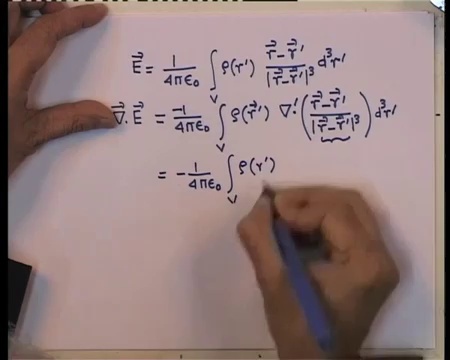 E⃗ = 1/4πε₀ ∫_V ρ(r′) (r⃗ − r⃗′)/|r⃗ − r⃗′|³ d³r′
∇⃗·E⃗ = −1/4πε₀ ∫_V ρ(r⃗′) ∇′·((r⃗ − r⃗′)/|r⃗ − r⃗′|³) d³r′
= −1/4πε₀ ∫_V ρ(r′)